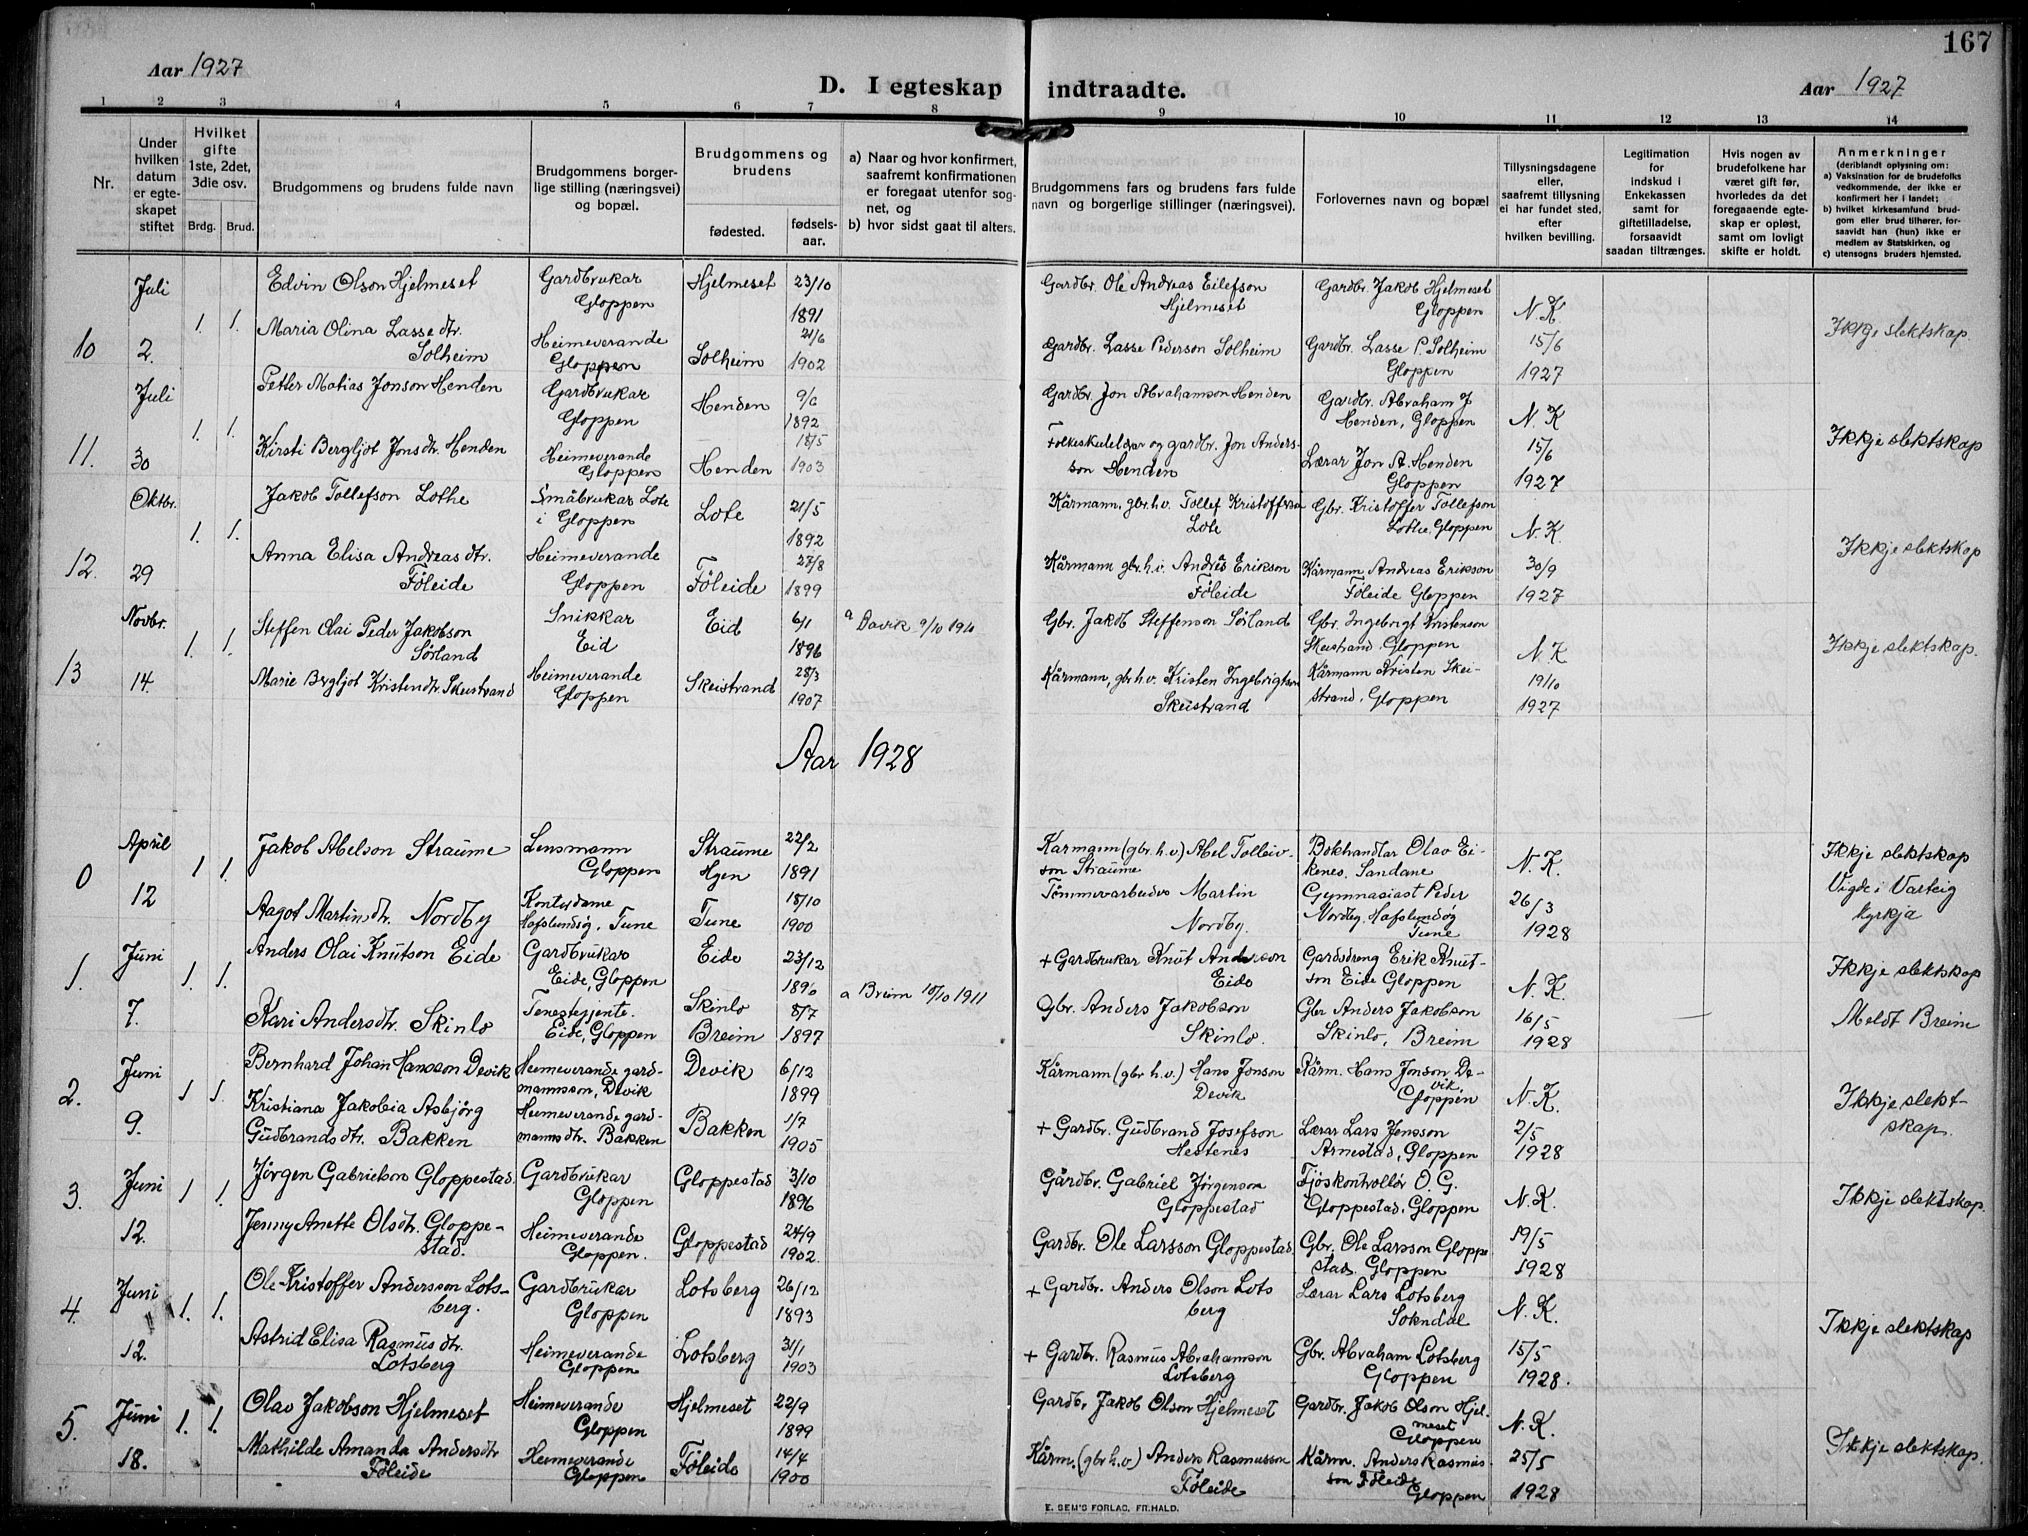 167
Aar 1927
D. I egteskap indtraadte.
Aar 1927
1 2 3 4 5 6 7 8 9 10 11 12 13 14
Nr.
Under hvilken datum er egteskapet stiftet
Hvilket gifte 1ste, 2det, 3die osv.
Brdg. Brud.
Brudgommens og brudens fulde navn
Brudgommens borgerlige stilling (næringsvei) og bopæl.
Brudgommens og brudens
fødested.
fødselsaar.
a) Naar og hvor konfirmert, saafremt konfirmationen er foregaat utenfor sognet, og
b) hvor sidst gaat til alters.
Brudgommens fars og brudens fars fulde navn og borgerlige stillinger (næringsvei).
Forlovernes navn og bopæl
Tillysningsdagene eller, saafremt tillysning ei har fundet sted, efter hvilken bevilling.
Legitimation for indskud i Enkekassen samt for giftetilladelse, forsaavidt saadan tiltrænges.
Hvis nogen av brudefolkene har været gift før, hvorledes da det foregaaende egteskap er opløst, samt om lovligt skifte er holdt.
Anmerkninger
(deriblandt oplysning om:
a) Vaksination for de brudefolks vedkommende, der ikke er konfirmert her i landet;
b) hvilket kirkesamfund brudgom eller brud tilhører, forsaavidt han (hun) ikke er medlem av Statskirken, og
c) utensogns bruders hjemsted.
10 Juli 2. 1. 1.
Edvin Olson Hjelmeset Gardbrukar Gloppen Hjelmeset 23/10 1891 Gardbr. Ole Andreas Eilefson Hjelmeset Gardbr. Jakob Hjelmeset Gloppen N.K
Maria Olina Lassedtr. Solheim Heimeverande Gloppen Solheim 21/6 1902 Gardbr. Lasse Pederson Solheim Gardbr. Lasse P. Solheim Gloppen 15/6 1927 Ikkje slektskap.
11. Juli 30 1. 1.
Petter Matias Jonson Henden Gardbrukar Gloppen Henden 9/6 1892 Gardbr. Jon Abrahamson Henden Gardbr. Abraham J Henden, Gloppen N.K
Kirsti Bergljot Jonsdtr. Henden Heimeverande Gloppen Henden 18/5 1903 Folkeskulelærar og gardbr. Jon Andersson Henden Lærar Jon A. Henden Gloppen 15/6 1927 Ikkje slektskap
12. Oktbr. 29 1. 1.
Jakob Tollefson Lothe Småbrukar Lote i Gloppen Lote 21/5 1892 Kårmann, gbr. h.v. Tollef Kristofferson Lote Gbr. Kristoffer Tollefson Lothe, Gloppen N.K.
Anna Elisa Andreasdtr. Föleide Heimeverande Gloppen Föleide 27/8 1899 Kårmann gbr. h.v. Andrés Erikson Föleide Kårmann Andreas Erikson Föleide Gloppen 30/9 1927 Ikkje slektskap
13 Novbr. 14. 1. 1.
Steffen Olai Peder Jakobson Sørland Snikkar Eid Eid 6/1 1896 a Davik 9/10 1910 Gbr. Jakob Steffenson Sørland Gbr. Ingebrigt Kristenson Skeistrand, Gloppen N.K
Marie Bergljot Kristendtr. Skeistrand Heimeverande Gloppen Skeistrand 28/3 1907 Kårmann, gbr. h.v. Kristen Ingebrigtson Skeistrand Kårmann Kristen Skeistrand, Gloppen 19/10 1927 Ikkje slektskap.
Aar 1928
0 April 12 1. 1.
Jakob Abelson Straume Lensmann Gloppen Straume Hyen 22/2 1891 Karmann (gbr. h.v.) Abel Tolleivson Straume Bokhandlar Olav Eikenes, Sandane N.K.
Aagot Martinsdtr. Nordby Kontordame Hafslundsøy, Tune Tune 18/10 1900 Tömmerarbeider Martin Nordby. Gymnasiast Peder Nordby, Hafslundsøy Tune 26/3 1928 Ikkje slektskap Vigde i Varteig kyrkja
1. Juni 7. 1. 1.
Anders Olai Knutson Eide Gardbrukar Eide, Gloppen Eide 23/12 1890 + Gardbrukar Knut Anderson Eide Gardsdreng Erik Knutson Eide Gloppen N.K.
Kari Andersdtr. Skinlo Tenestejente. Eide, Gloppen Skinlo Breim 8/7 1897 a Breim 18/10 1911 Gbr. Anders Jakobson Skinlo. Gbr Anders Jakobson Skinlo, Breim 16/5 1928 Ikkje slektskap Meldt Breim
2. Juni 9. 1 1.
Bernhard Johan Hansson Devik Heimeverande gardmannsson, Devik Devik 6/12 1899 Kårmann (gbr h.v.) Hans Jonson Devik Kårm. Hans Jonson Devik, Gloppen N.K.
Kristiana Jakobia Asbjörg Gudbrandsdtr. Bakken Heimeverande gardmannsdtr. Bakken Bakken 1/7 1905 + Gardbr. Gudbrand Josefson Hestenes Lærar Lars Jensson Arnestad, Gloppen 2/5 1928 Ikkje slektskap.
3. Juni 12. 1 1.
Jørgen Gabrielson Gloppestad Gardbrukar Gloppen Gloppestad 3/10 1896 Gårdbr. Gabriel Jørgenson Gloppestad Fjøskontrollör O.G. Gloppestad, Gloppen N.K.
Jenny Anette Olsdtr. Gloppestad. Heimeverande Gloppen. Gloppestad 24/9 1902. Gardbr. Ole Larsson Gloppestad Gbr. Ole Larsson Gloppestad. Gloppen 19/5 1928 Ikkje slektskap.
4. Juni 12. 1. 1.
Ole-Kristoffer Andersson Lotsberg. Gardbrukar Gloppen Lotsberg 26/12 1893 + Gardbr. Anders Olson Lotsberg Lærar Lars Lotsberg Sokndal N.K.
Astrid Elisa Rasmusdtr. Lotsberg Heimeverande Gloppen Lotsberg 31/1 1903 + Gardbr. Rasmus Abrahamson Lotsberg Gbr. Abraham Lotsberg Gloppen 15/5 1928. Ikkje slektskap
5. Juni 18. 1. 1.
Olav Jakobson Hjelmeset Heimeverande Gloppen Hjelmeset 22/9 1899 Gardbr Jakob Olson Hjelmeset Gardbr. Jakob Olson Hjelmeset Gloppen N.K.
Mathilde Amanda Andersdtr Föleide Heimeverande Gloppen Föleide 14/4 1900 Kårm. (gbr h.v) Anders Rasmusson Föleide Kårm. Anders Rasmusson Föleide Gloppen 25/5 1928 Ikkje slektskap.
E. SEM'S FORLAG, FR.HALD.